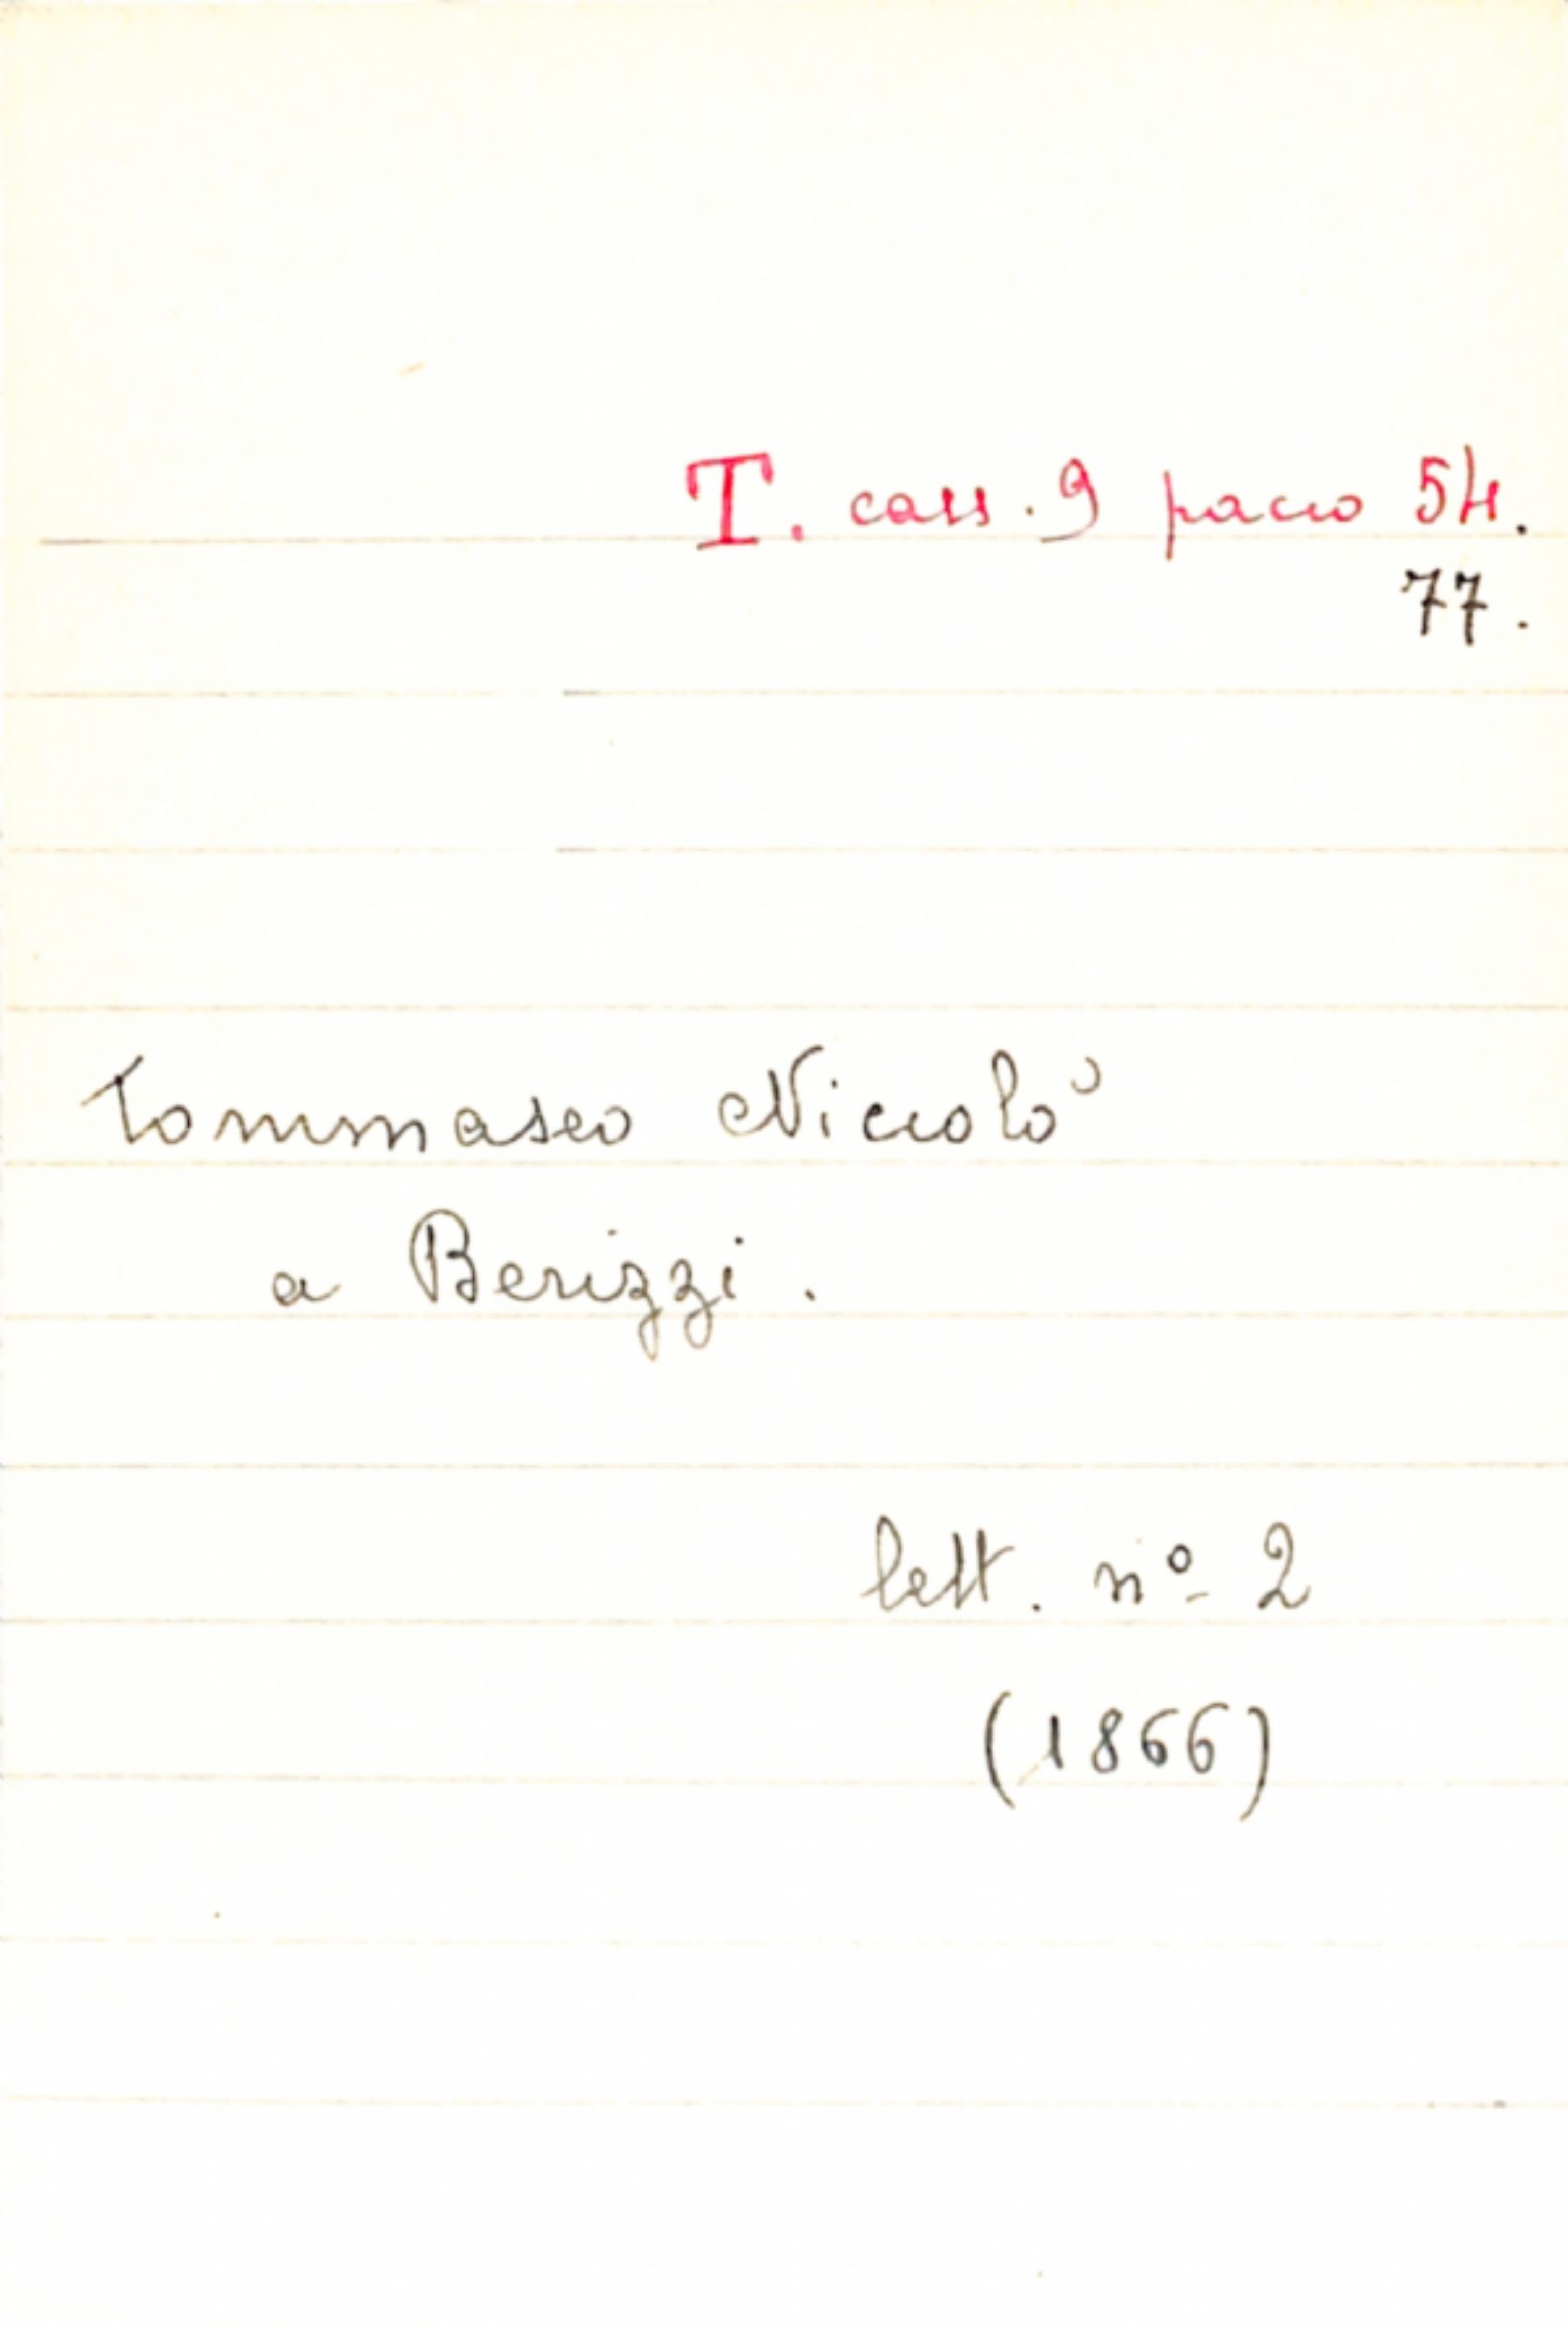 T. cass. 9 pacco 54.
77.
Tommaseo Niccolò
a Berizzi.
lett. nº 2
(1866)